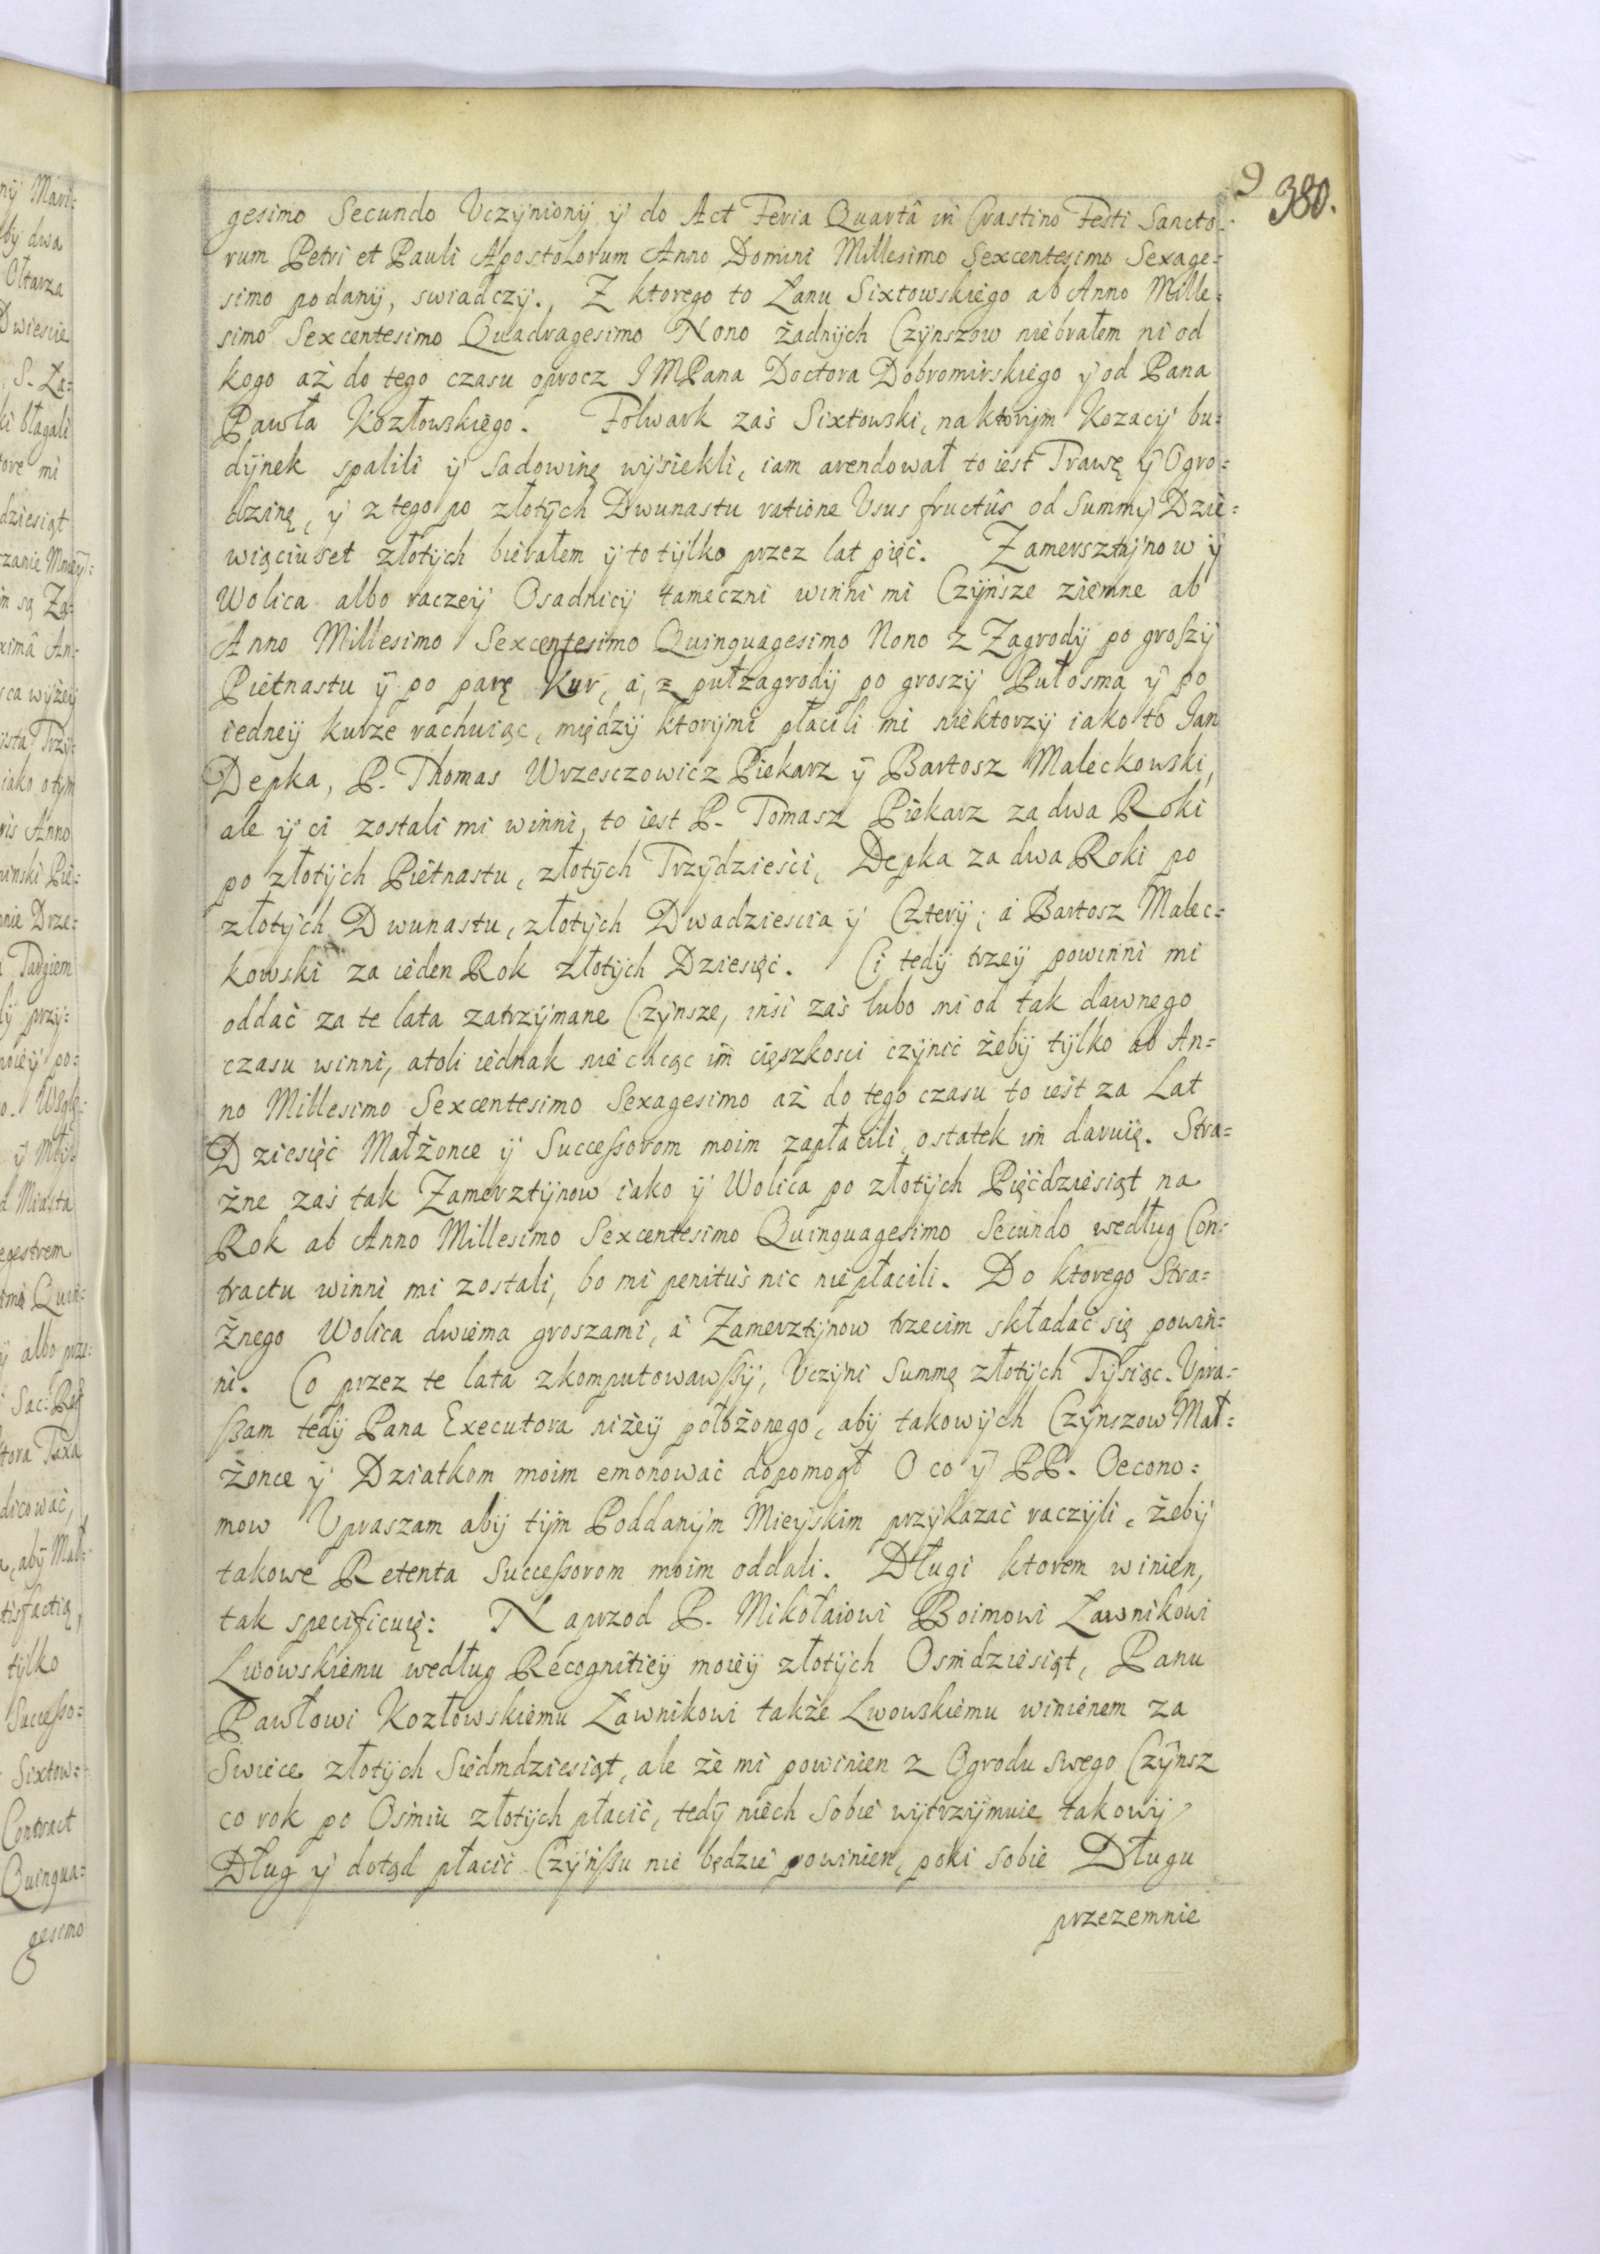 9 380.
gesimo Secundo Uczÿnionÿ ÿ do Act Feria Quartâ in Crastino Festi Sancto-
rum Petri et Pauli Apostolorum Anno Domini Millesimo Sexcentesimo Sexage=
simo podanÿ, swiadczÿ., Z ktorego to Łanu Sixtowskiego ab Anno Mille=
simo Sexcentesimo Quadragesimo Nono żadnÿch Czÿnszow niebrałem ni od
kogo aż do tego czasu oprocz IMPana Doctora Dobromirskiego ÿ od Pana
Pawła Kozłowskiego. Folwark zaś Sixtowski, na ktorÿm Kozacÿ bu=
dÿnek spalili ÿ Sadowinę wÿsiekli, iam arendował to iest Trawę ÿ Ogro=
dzinę, ÿ z tego po złotÿch Dwunastu ratione Usus fructûs od Summÿ Dzie=
więciuset złotÿch bierałem ÿ to tÿlko przez lat pięć. Zamersztÿnow ÿ
Wolica albo raczeÿ Osadnicÿ tameczni winni mi Czÿnsze ziemne ab
Anno Millesimo Sexcentesimo Quinquagesimo Nono z Zagrodÿ po groszÿ
Piętnastu ÿ po parę Kur, á, z pułzagrodÿ po groszÿ Pułosma ÿ po
iedneÿ kurze rachuiąc, międzÿ ktorÿmi płacili mi niektorzÿ iako to Jan
Depka, P. Thomas Wrzesczowicz Piekarz ÿ Bartosz Maleckowski,
ale ÿ ci zostali mi winni, to iest P. Tomasz Piekarz za dwa Roki
po złotÿch Piętnastu, złotÿch Trzÿdzieści, Depka za dwa Roki po
złotÿch Dwunastu, złotÿch Dwadziescia ÿ Czterÿ; á Bartosz Malec=
kowski za ieden Rok złotÿch Dziesięć. Ci tedÿ trzeÿ powinni mi
oddać za te lata zatrzÿmane Czÿnsze, inśi zaś lubo mi od tak dawnego
czasu winni, atoli iednak nie chcąc im cięszkosci czÿnić żebÿ tÿlko ab An=
no Millesimo Sexcentesimo Sexagesimo aż do tego czasu to iest za Lat
Dziesięć Małżonce ÿ Successorom moim zapłacili, ostatek im daruię. Stra=
żne zaś tak Zamerztÿnow iako ÿ Wolica po złotÿch Pięćdziesiąt na
Rok ab Anno Millesimo Sexcentesimo Quinquagesimo Secundo według Con=
tractu winni mi zostali, bo mi penitus nic niepłacili. Do ktorego Stra=
żnego Wolica dwiema groszami, á Zamerztÿnow trzecim składać się powin=
ni. Co przez te lata zkomputowawszÿ, Uczÿni Summę złotÿch Tÿsiąc. Upra=
szam tedÿ Pana Executora niżeÿ położonego, abÿ takowÿch Czÿnszow Mał=
żonce ÿ Dziatkom moim emonować dopomogł O co ÿ PP. Oecono=
mow Upraszam abÿ tÿm Poddanÿm Mieÿskim przÿkazać raczÿli, żebÿ
takowe Retenta Successorom moim oddali. Długi ktorem winien,
tak specificuię: Naprzod P. Mikołaiowi Boimowi Ławnikowi
Lwowskiemu według Recognitieÿ moieÿ złotÿch Osmdziesiąt, Panu
Pawłowi Kozłowskiemu Ławnikowi także Lwowskiemu winienem za
Swiece złotÿch Siedmdziesiąt, ale że mi powinien z Ogrodu swego Czÿnsz
co rok po Ośmiu złotÿch płacić, tedÿ niech sobie wÿtrzÿmuie takowÿ
Dług ÿ dotąd płacić Czÿnszu nie będzie powinien, poki sobie Długu
przezemnie